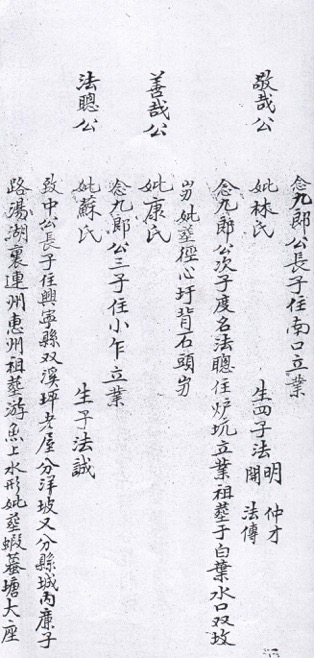 念九郎公長子住南口立業
敬哉公
妣林氏 生四子法明 仲才
開 法傳
念九郎公次子度名法聰住炉坑立業祖塟于白葉水口双坟
岃妣塟徑心圩背石頭岃
善哉公
妣康氏
念九郎公三子住小乍立業
法聰公
妣蘇氏 生子法誠
致中公長子住興寧縣双溪坪老屋分洋坡又分縣城內廉子
路湯湖裏連州惠州祖塟游魚上水形妣塟蝦蟇塘大座